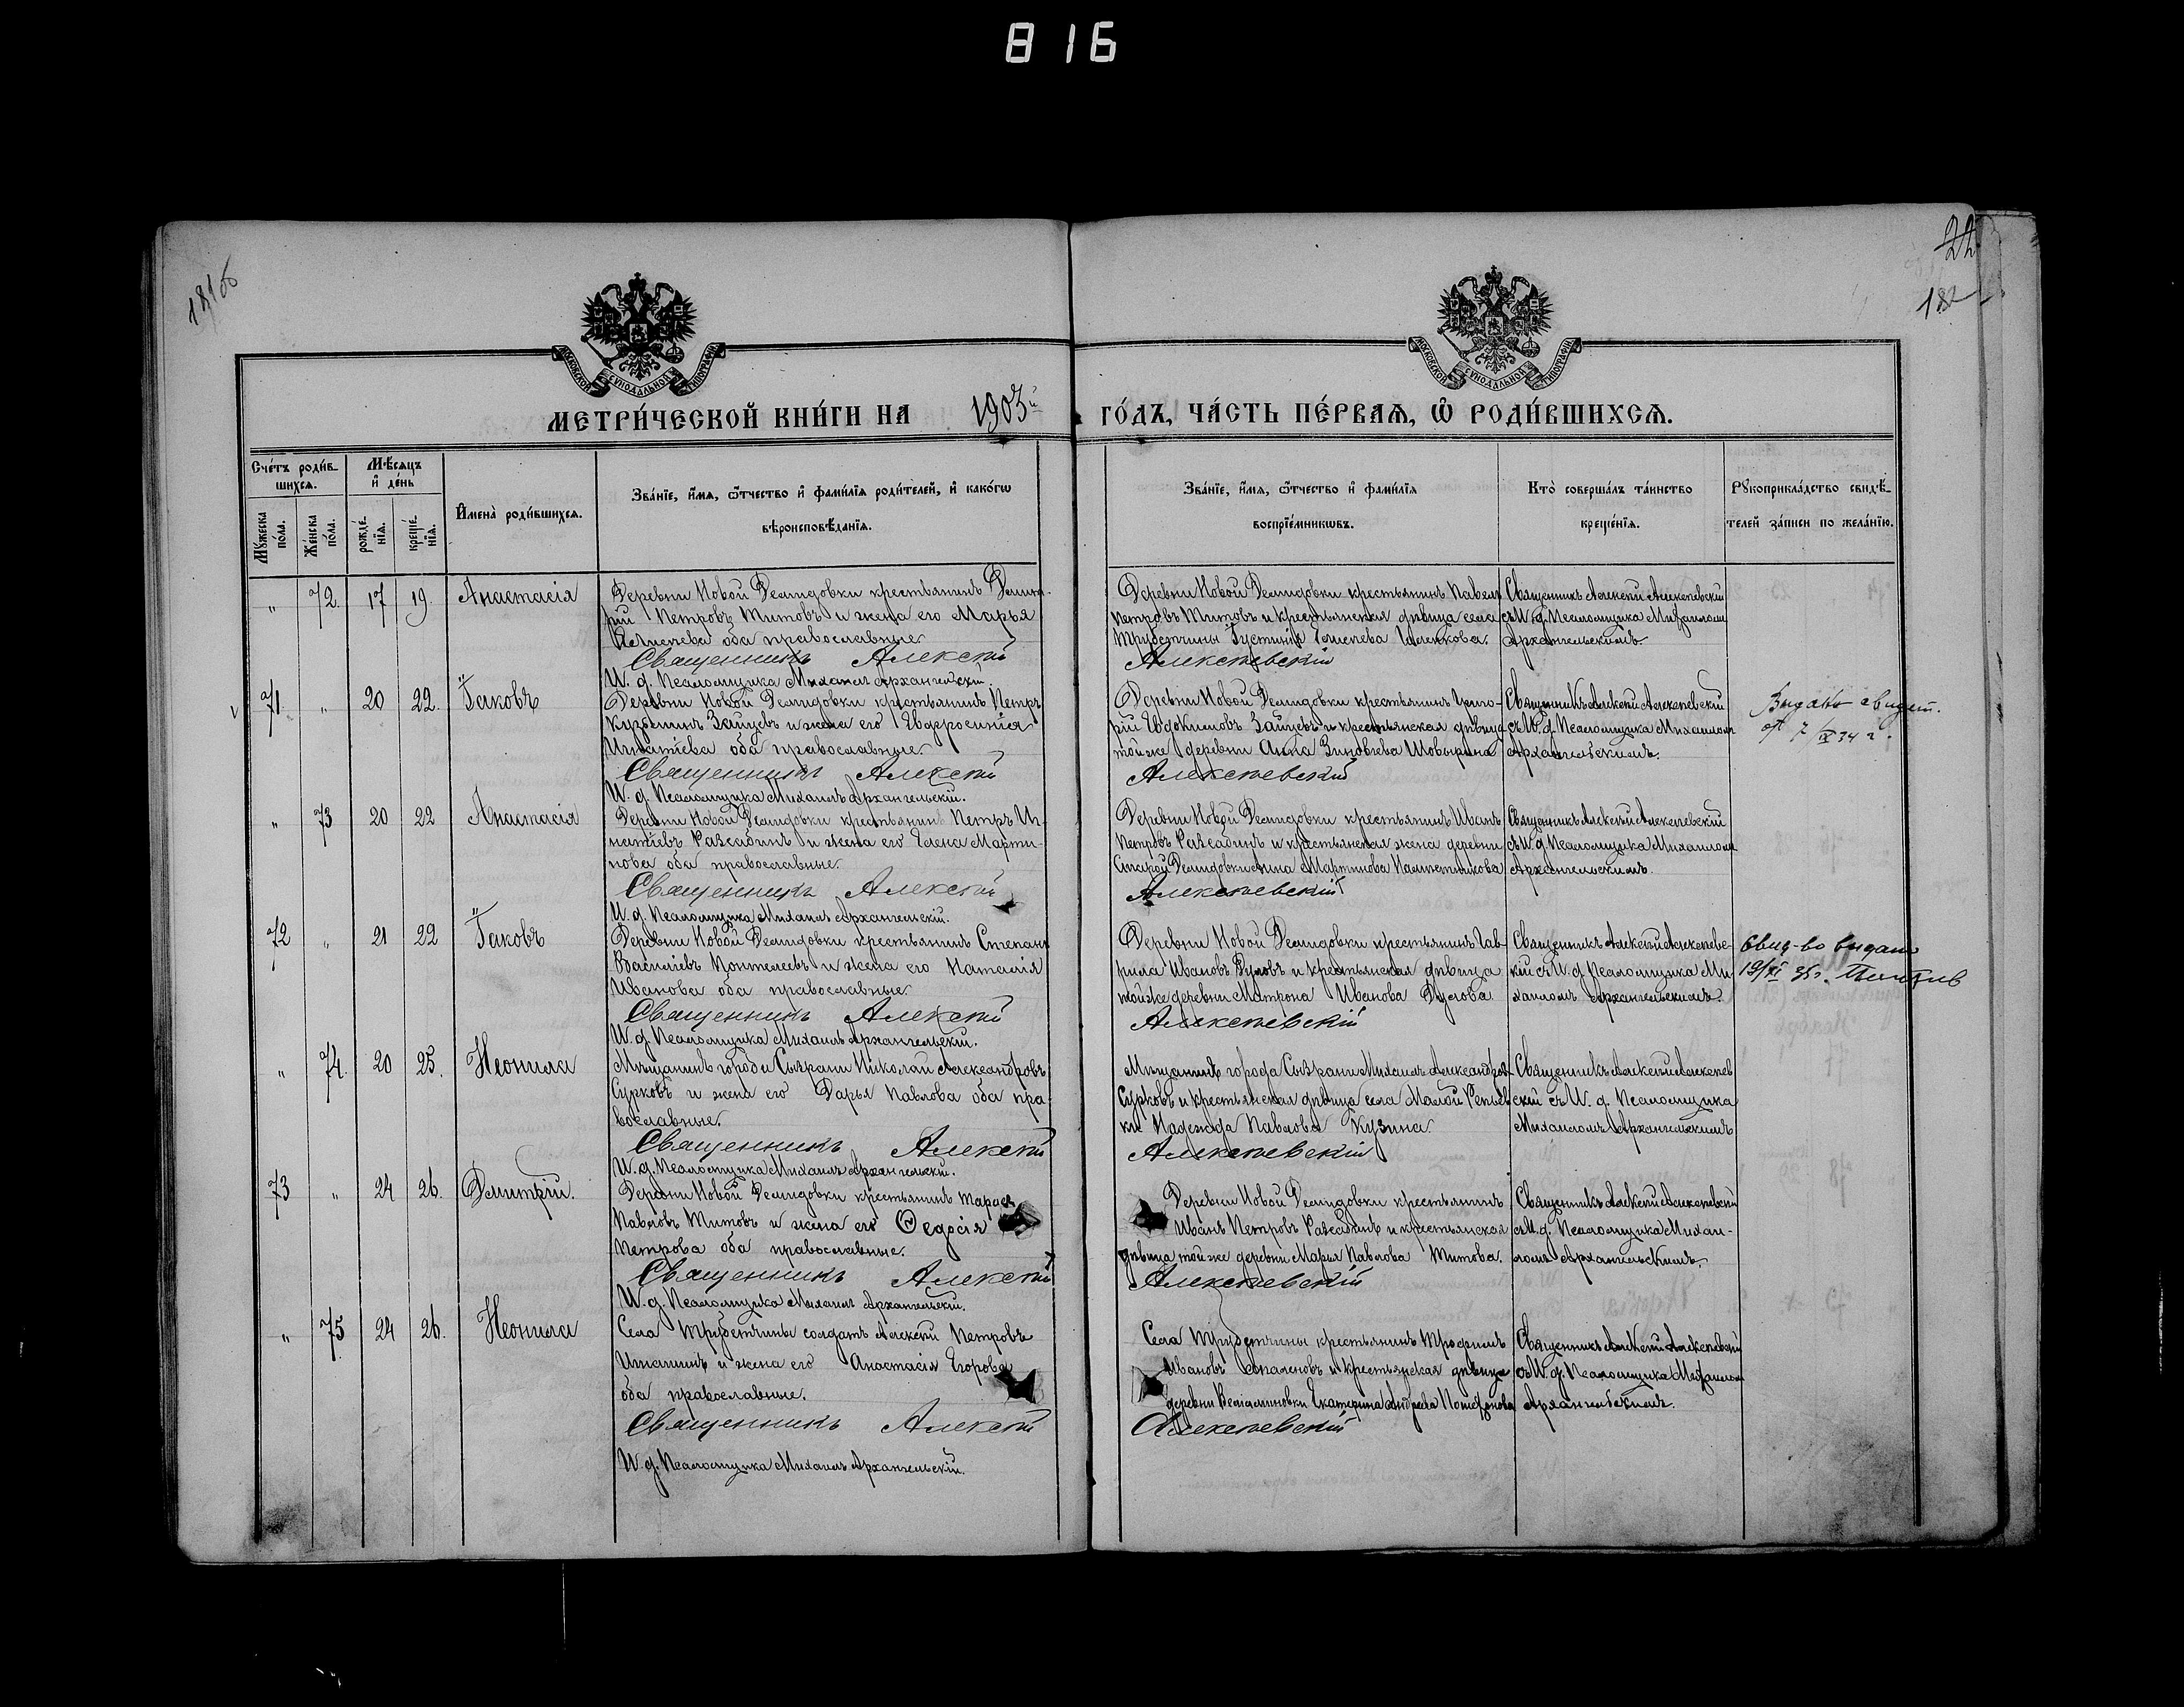 816
22
182
МОСКОВСКОЙ СѴНОДАЛЬНОЙ ТИПОГРАФІИ
МОСКОВСКОЙ СѴНОДАЛЬНОЙ ТИПОГРАФІИ
МЕТРИ́ЧЕСКОЙ КНИ́ГИ НА 1903й ГО́ДЪ, ЧА́СТЬ ПЕ́РВАѦ, Ѡ҆ РОДИ́ВШИХСѦ.
Сче́тъ роди́в-
шихсѧ.
Мꙋ́жеска по́ла.
Же́нска по́ла.
Мѣ́сѧцъ
и҆ де́нь
рожде́-
нїѧ.
креще́-
нїѧ.
И҆мена̀ роди́вшихсѧ.
Зва́нїе, и҆́мѧ, ѻ҆́тчество и҆ фами́лїѧ роди́телей, и҆ како́гѡ
вѣроисповѣ́данїѧ.
Зва́нїе, и҆́мѧ, ѻ҆́тчество и҆ фами́лїѧ
воспрїе́мникѡвъ.
Кто̀ соверша́лъ та́инство
креще́нїѧ.
Рꙋкоприкла́дство свидѣ́-
телей за́писи по жела́нїю.
„ 72. 17 19. Анастасія
Деревни Новой Демидовки крестьянинъ Димит-
рій Петровъ Титовъ и жена его Марья
оба православные
Священникъ Алексій
И. д. Псаломщика Михаилъ Архангельскій.
Деревни Новой Демидовки крестьянинъ Павелъ
Петровъ Титовъ и крестьянская дѣвица села
Трубетчины
Алексѣевскій
Священникъ Алексій Алексѣевскій
съ И. д. Псаломщика Михаиломъ
Архангельскимъ.
71. „ 20 22. Іаковъ
Деревни Новой Демидовки крестьянинъ Петръ
Кузьминъ Зайцевъ и жена его Евдросинія
Игнатіева оба православные
Священникъ Алексій
И. д. Псаломщика Михаилъ Архангельскій.
Деревни Новой Демидовки крестьянинъ Григо-
рій Евдокимовъ Зайцевъ и крестьянская дѣвица
той же деревни Анна Зиновьева
Алексѣевскій
Священникъ Алексій Алексѣевскій
съ И. д. Псаломщика Михаиломъ
Архангельскимъ.
Выдано свидет.
от 7/IX 34 г.
„ 73 20 22 Анастасія
Деревни Новой Демидовки крестьянинъ Петръ Иг-
натіевъ Разсадинъ и жена его Елена Марти-
нова оба православные.
Священникъ Алексій
И. д. Псаломщика Михаилъ Архангельскій.
Деревни Новой Демидовки крестьянинъ Иванъ
Петровъ Разсадинъ и крестьянская жена деревни
Старой Демидовки Анна Мартинова
Алексѣевскій
Священникъ Алексій Алексѣевскій
съ И. д. Псаломщика Михаиломъ
Архангельскимъ.
72 „ 21 22 Іаковъ
Деревни Новой Демидовки крестьянинъ Степанъ
Василіевъ Понтелеевъ и жена его Наталія
Иванова оба православные.
Священникъ Алексій
И. д. Псаломщика Михаилъ Архангельскій.
Деревни Новой Демидовки крестьянинъ Гав-
рила Ивановъ и крестьянская дѣвица
той же деревни Матрона Иванова
Алексѣевскій
Священникъ Алексій Алексѣевс-
кій съ И. д. Псаломщика Ми-
хаиломъ Архангельскимъ.
Свид-во выдано
19/XI 35г.
„ 74. 20 25. Неонила
Мѣщанинъ города Сызрани Николай Александровъ
Сурковъ и жена его Дарья Павлова оба пра-
вославные.
Священникъ Алексій
И. д. Псаломщика Михаилъ Архангельскій.
Мѣщанинъ города Сызрани Михаилъ Александровъ
Сурковъ и крестьянская дѣвица села Малой Репьев-
ки Надежда Павлова Кузина.
Алексѣевскій
Священникъ Алексій Алексѣев-
скій съ И. д. Псаломщика
Михаиломъ Архангельскимъ
73 „ 24 26. Дмитрій.
Деревни Новой Демидовки крестьянинъ Тарасъ
Павловъ Титовъ и жена его Ѳедосія
Петрова оба православные.
Священникъ Алексій
И. д. Псаломщика Михаилъ Архангельскій.
Деревни Новой Демидовки крестьянинъ
Иванъ Петровъ Разсадинъ и крестьянская
дѣвица той же деревни Марья Павлова Титова.
Алексѣевскій
Священникъ Алексій Алексѣевскій
съ И. д. Псаломщика Михаи-
ломъ Архангельскимъ.
„ 75 24 26. Неонила
Села Трубетчины солдатъ Алексій Петровъ
и жена его Анастасія Егорова
оба православные.
Священникъ Алексій
И. д. Псаломщика Михаилъ Архангельскій.
Села Трубетчины крестьянинъ Трофимъ
Ивановъ и крестьянская дѣвица
деревни Екатерина Андреева
Алексѣевскій
Священникъ Алексій Алексѣевскій
съ И. д. Псаломщика Михаиломъ
Архангельскимъ.